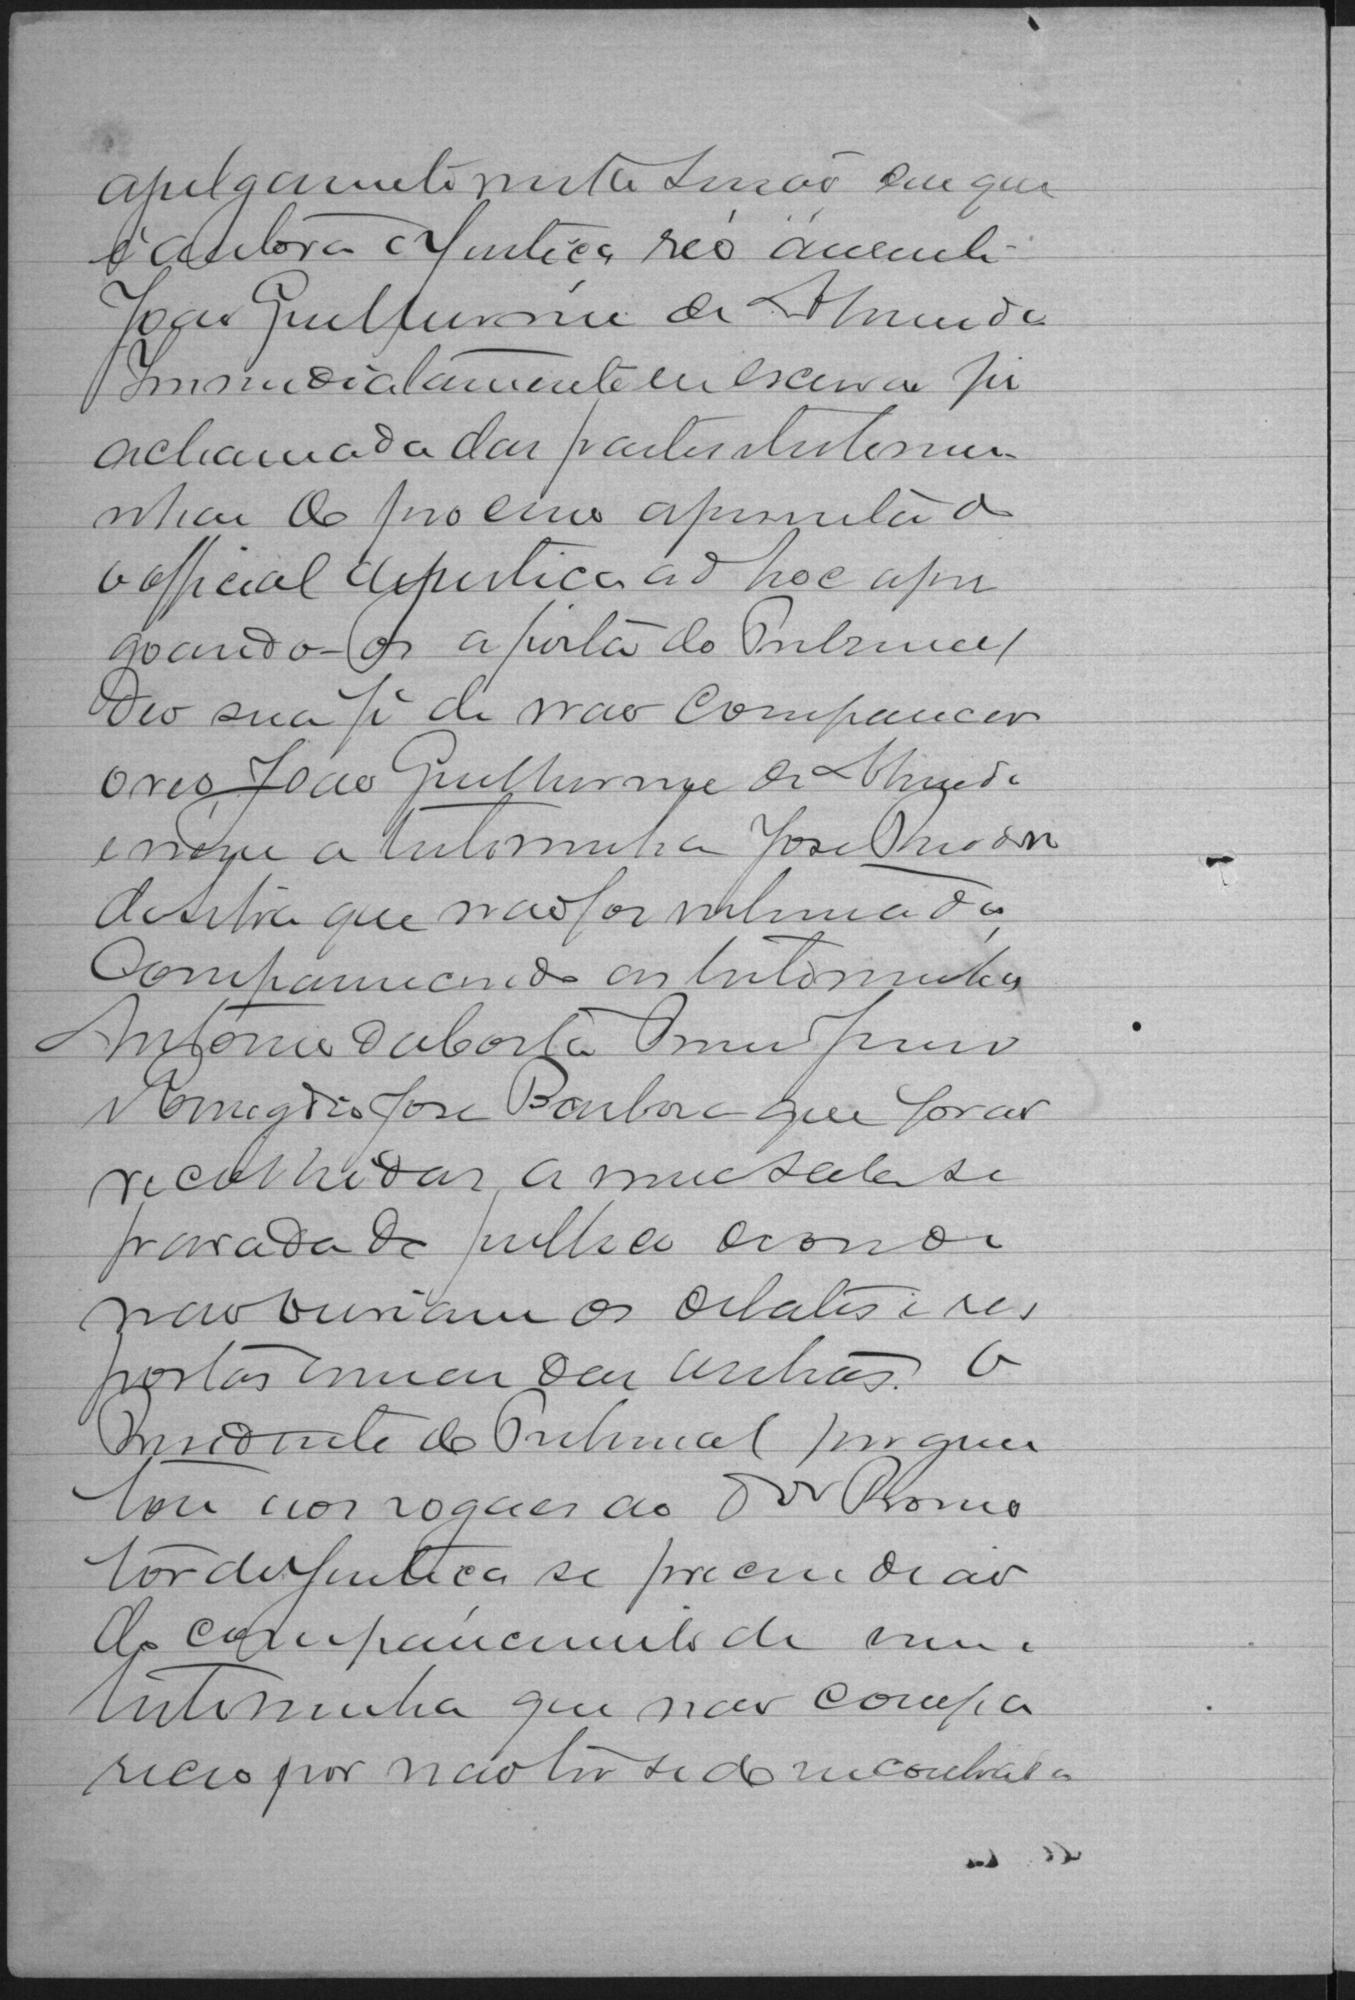 a julgamento nesta sessão em que
é autora a Justiça réo ausente
João Guilherme de Almeida
Immediatamente eu escrivão fiz
a chamada das partes e testemu
nhas do processo apresentado
o official de justiça ad hoc apre
goando-os a porta do Tribunal
deo sua fé de não comparecer
o reo João Guilherme de Almeida
e nem a testemunha José
da Silva que não foi intimada,
Comparecendo as testemunhas
Antonio da Costa
Remigio José Barbosa que forão
recolhidas a uma sala se
parada do publico d'onde
não ouviam os debates e res
postas umas das outras. O
Presidente do Tribunal pergun
tou aos vogaes ao Dor Promo
tor de Justiça se prescindião
do comparecimento de uma
testemunha que não compa
receo por não ter sido encontrada